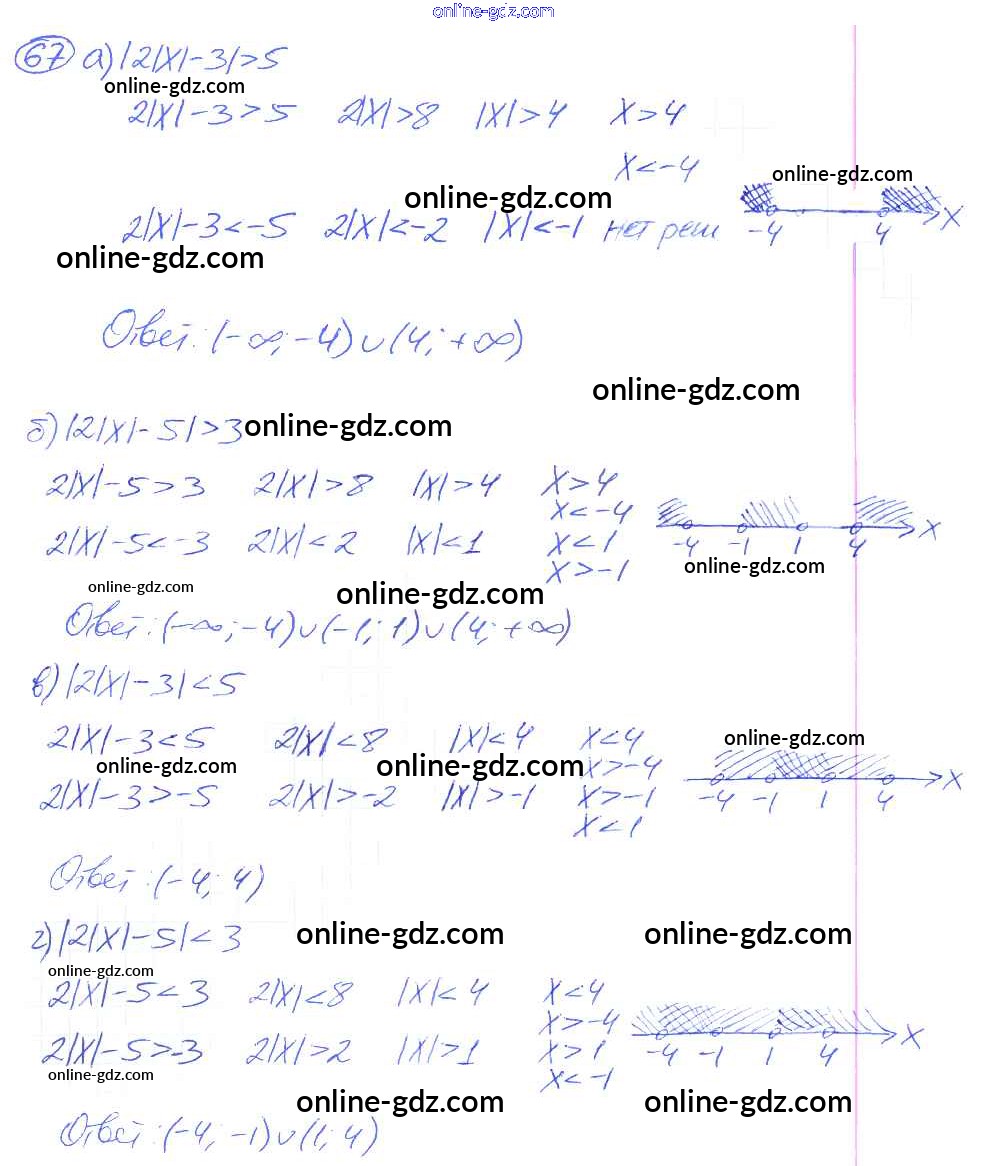 online-gdz.com
67 а) |2|x|-3|>5
online-gdz.com
2|x|-3>5 2|x|>8 |x|>4 x>4
x<-4
online-gdz.com
online-gdz.com
2|x|-3<-5 2|x|<-2 |x|<-1 нет реш
-4 4 x
online-gdz.com
Ответ: (-∞;-4)∪(4;+∞)
online-gdz.com
б) |2|x|-5|>3
online-gdz.com
2|x|-5>3 2|x|>8 |x|>4 x>4
x<-4
2|x|-5<-3 2|x|<2 |x|<1 x<1
x>-1
-4 -1 1 4 x
online-gdz.com
online-gdz.com
online-gdz.com
Ответ: (-∞;-4)∪(-1;1)∪(4;+∞)
в) |2|x|-3|<5
2|x|-3<5 2|x|<8 |x|<4 x<4
online-gdz.com
online-gdz.com
online-gdz.com
x>-4
2|x|-3>-5 2|x|>-2 |x|>-1 x>-1
x<1
-4 -1 1 4 x
Ответ: (-4; 4)
г) |2|x|-5|<3
online-gdz.com
online-gdz.com
online-gdz.com
2|x|-5<3 2|x|<8 |x|<4 x<4
x>-4
2|x|-5>-3 2|x|>2 |x|>1 x>1
x<-1
-4 -1 1 4 x
online-gdz.com
online-gdz.com
online-gdz.com
Ответ: (-4; -1)∪(1; 4)